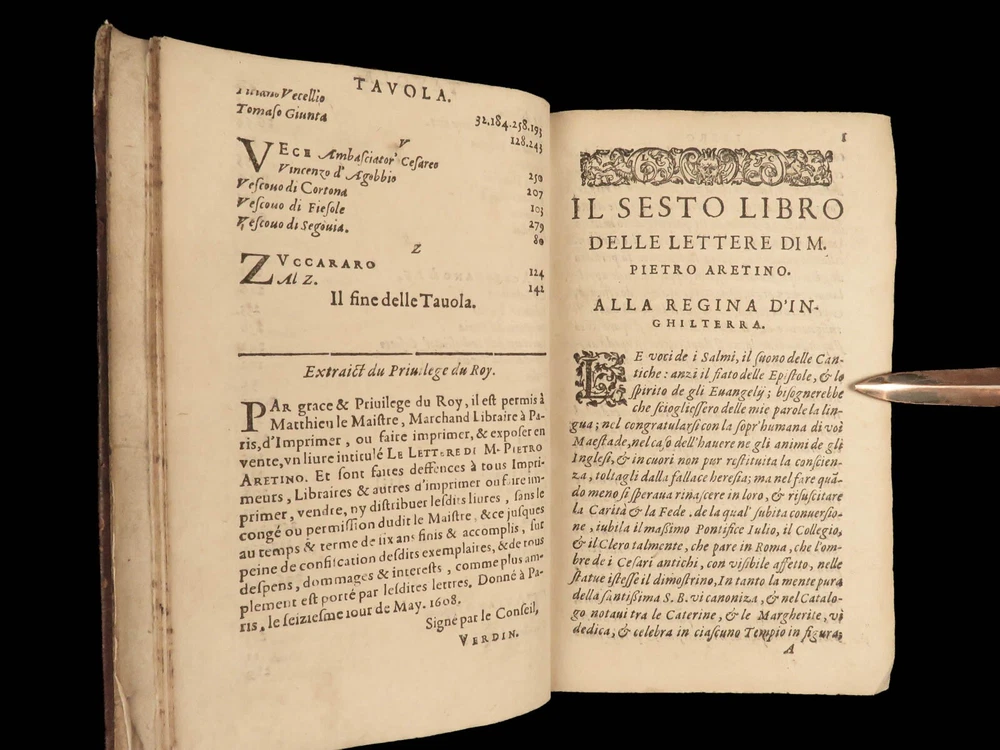 TAVOLA.
Titiano Vecellio
32.184.258.193
Tomaso Giunta
128.243
V
VECE Ambasciator' Cesareo
250
Vincenzo d'Agobbio
207
Vescouo di Cortona
103
Vescouo di Fiesole
279
Vescouo di Segouia.
80
Z
ZVCCARARO
124
Al Z.
142
Il fine delle Tauola.
Extraict du Priuilege du Roy.
PAr grace & Priuilege du Roy, il est permis à
Matthieu le Maistre, Marchand Libraire à Pa-
ris, d'Imprimer, ou faire imprimer, & exposer en
vente, vn liure intitulé LE LETTERE DI M. PIETRO
ARETINO. Et sont faites deffences à tous Impri-
meurs, Libraires & autres d'imprimer ou faire im-
primer, vendre, ny distribuer lesdits liures, sans le
congé ou permission dudit le Maistre, & ce jusques
au temps & terme de six ans finis & accomplis, sur
peine de confiscation desdits exemplaires, & de tous
despens, dommages & interests, comme plus am-
plement est porté par lesdites lettres. Donné à Pa-
ris, le seiziesme iour de May. 1608.
Signé par le Conseil,
VERDIN.
1
IL SESTO LIBRO
DELLE LETTERE DI M.
PIETRO ARETINO.
ALLA REGINA D'IN-
GHILTERRA.
LE voci de i Salmi, il suono delle Can-
tiche: anzi il fiato delle Epistole, & lo
spirito de gli Euangelij; bisognerebbe
che sciogliessero delle mie parole la lin-
gua; nel congratularsi con la sopr'humana di voi
Maestade, nel caso dell'hauere ne gli animi de gli
Inglesi, & in cuori non pur restituita la conscien-
za, toltagli dalla fallace heresia; ma nel fare quã-
do meno si speraua rinascere in loro, & risuscitare
la Carità & la Fede. de la qual' subita conuersio-
ne, iubila il massimo Pontifice Iulio, il Collegio,
& il Clero talmente, che pare in Roma, che l'om-
bre de i Cesari antichi, con visibile affetto, nelle
statue istesse il dimostrino, In tanto la mente pura
della santissima S. B. vi canoniza, & nel Catalo-
go notaui tra le Caterine, & le Margherite, vi
dedica, & celebra in ciascuno Tempio in figura;
A